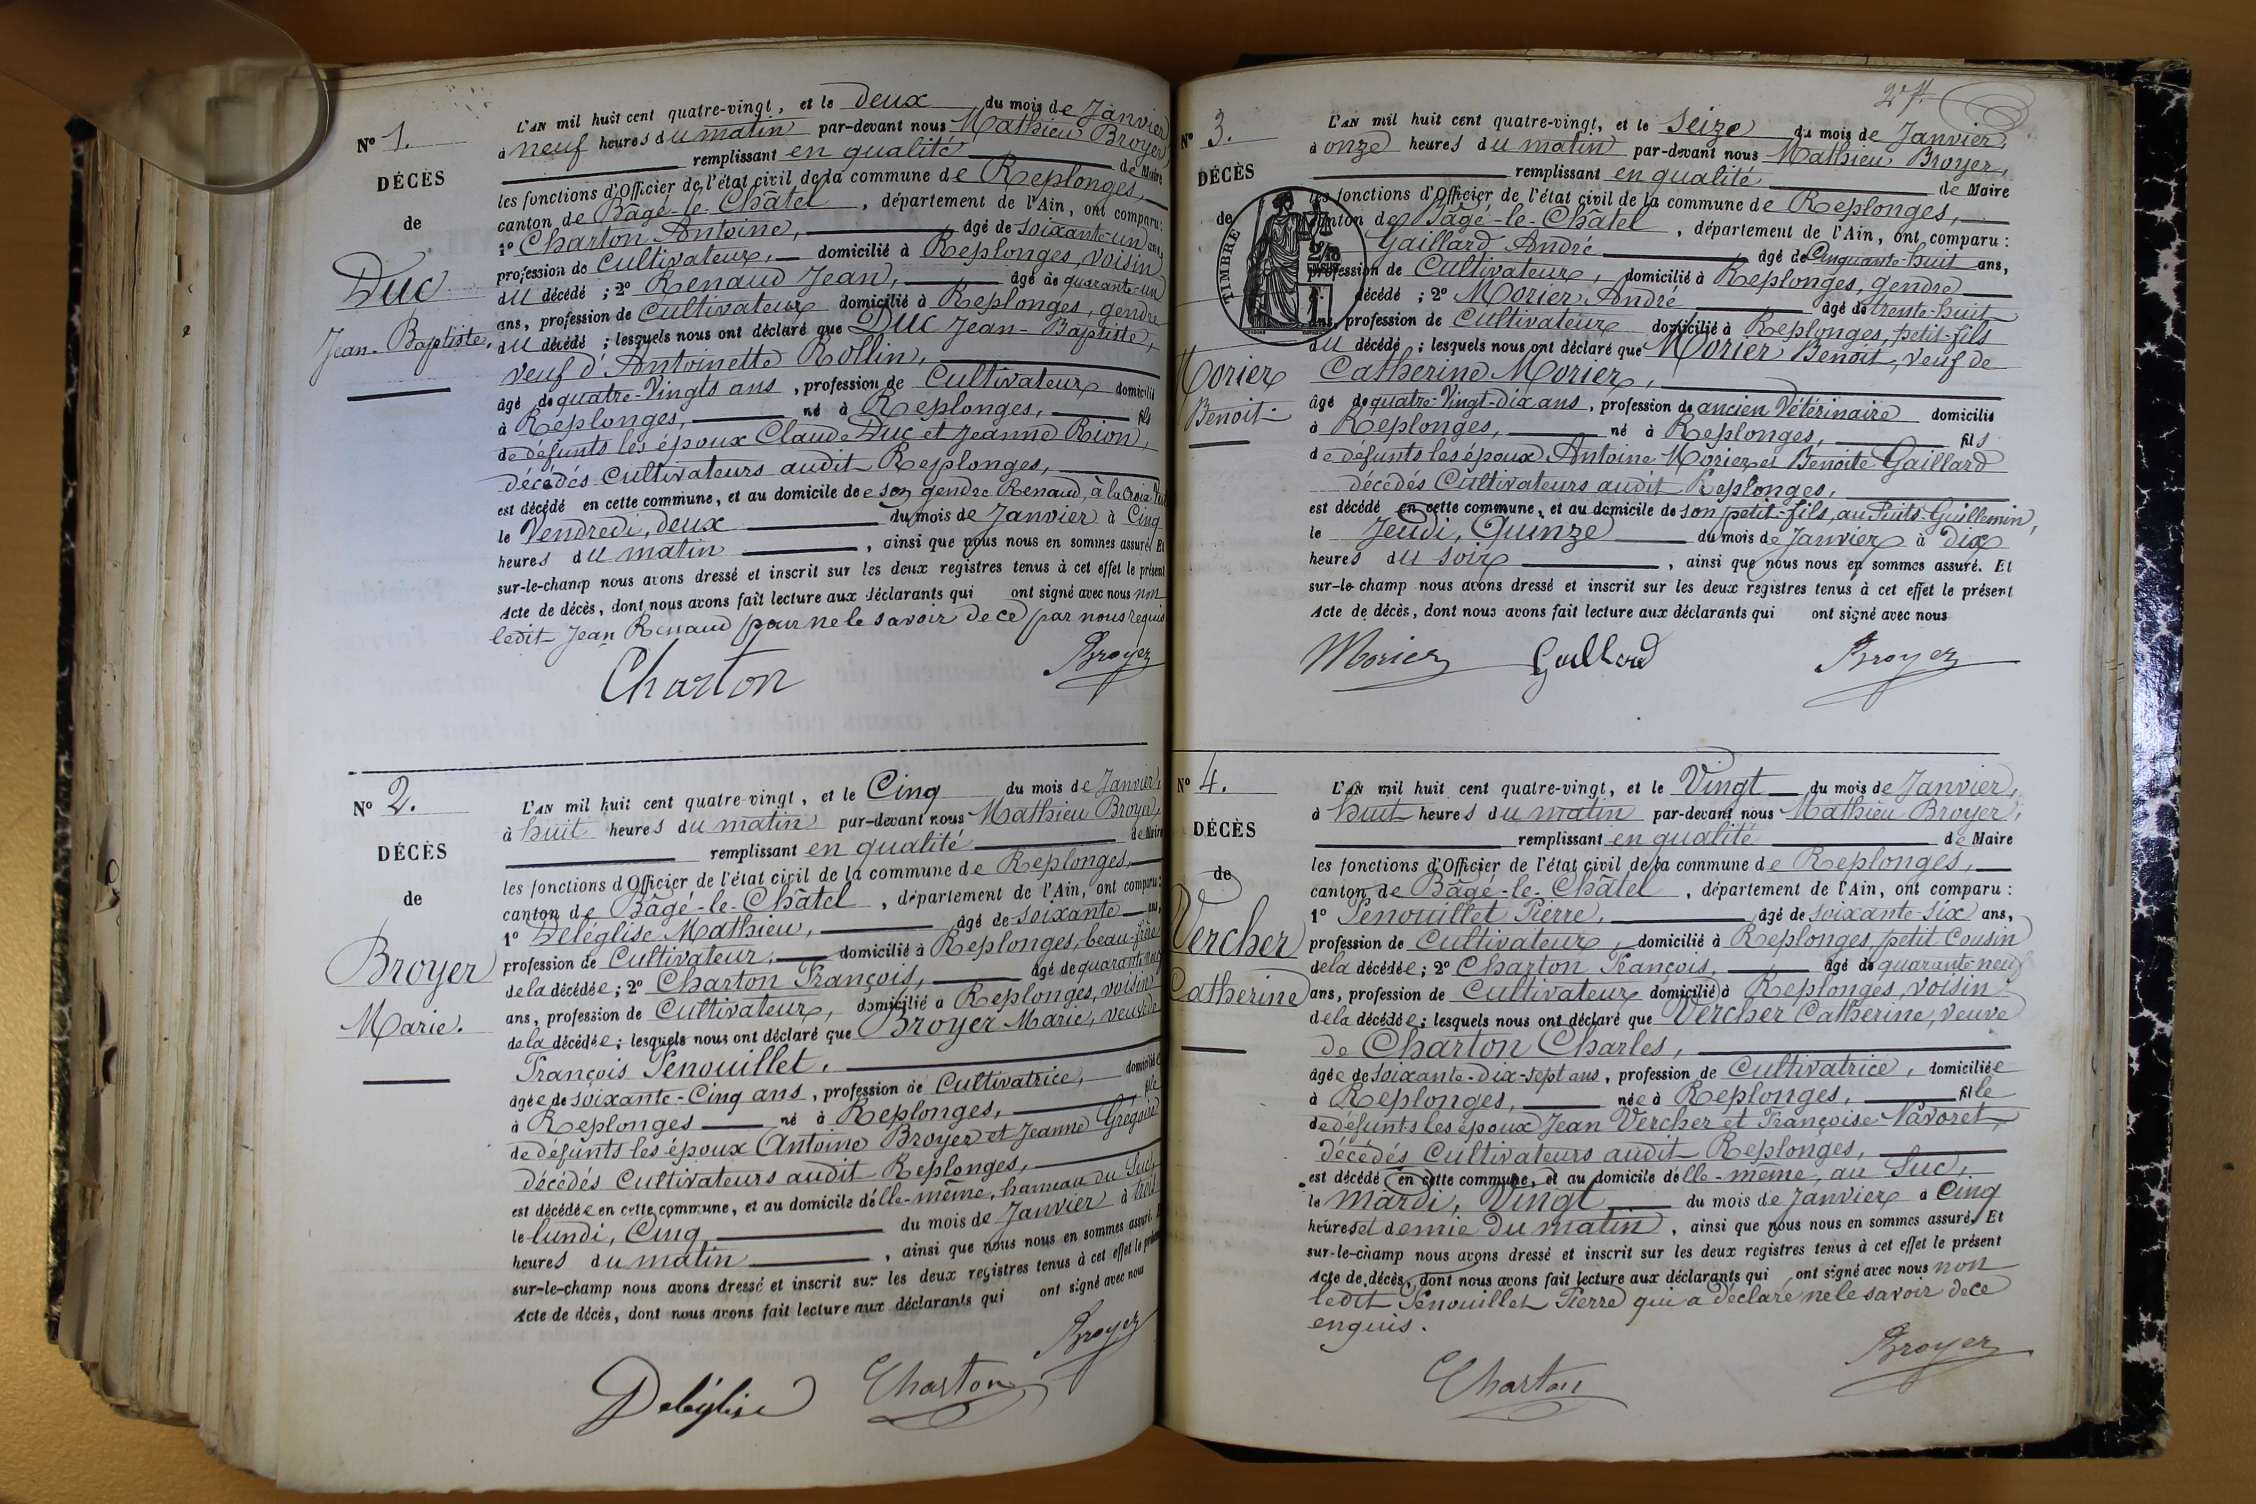 N° 1.
DÉCÈS
de
Duc
Jean-Baptiste,
L'AN mil huit cent quatre-vingt, et le deux du mois de Janvier
à neuf heures du matin par-devant nous Mathieu Broyer,
remplissant en qualité de Maire
les fonctions d'Officier de l'état civil de la commune de Replonges,
canton de Bâgé-le-Châtel, département de l'Ain, ont comparu:
1° Charton Antoine, âgé de soixante-un ans,
profession de Cultivateur, domicilié à Replonges, voisin
du décédé; 2° Renaud Jean, âgé de quarante-un
ans, profession de Cultivateur domicilié à Replonges, gendre
du décédé; lesquels nous ont déclaré que Duc Jean-Baptiste,
veuf d'Antoinette Rollin,
âgé de quatre-Vingts ans, profession de Cultivateur domicilié
à Replonges, né à Replonges, fils
de défunts les époux Claude Duc et Jeanne Rion,
décédés Cultivateurs audit Replonges,
est décédé en cette commune, et au domicile de son gendre Renaud, à la Croix
le Vendredi, deux du mois de Janvier à Cinq
heures du matin, ainsi que nous nous en sommes assuré. Et
sur-le-champ nous avons dressé et inscrit sur les deux registres tenus à cet effet le présent
Acte de décès, dont nous avons fait lecture aux déclarants qui ont signé avec nous non
ledit Jean Renaud pour ne le savoir de ce par nous requis
Charton Broyer
N° 2.
DÉCÈS
de
Broyer
Marie.
L'AN mil huit cent quatre-vingt, et le Cinq du mois de Janvier,
à huit heures du matin par-devant nous Mathieu Broyer,
remplissant en qualité de Maire
les fonctions d'Officier de l'état civil de la commune de Replonges,
canton de Bâgé-le-Châtel, département de l'Ain, ont comparu:
1° Deléglise Mathieu, âgé de soixante ans,
profession de Cultivateur, domicilié à Replonges, beau-frère
de la décédée; 2° Charton François, âgé de quarante neuf
ans, profession de Cultivateur, domicilié à Replonges, voisin
de la décédée; lesquels nous ont déclaré que Broyer Marie, veuve de
François Penouillet,
âgée de soixante-Cinq ans, profession de Cultivatrice, domiciliée
à Replonges né à Replonges, fille
de défunts les époux Antoine Broyer et Jeanne Grégoire
décédés Cultivateurs audit Replonges,
est décédée en cette commune, et au domicile d'elle-même, hameau du Luc,
le lundi, Cinq du mois de Janvier à trois
heures du matin, ainsi que nous nous en sommes assuré. Et
sur-le-champ nous avons dressé et inscrit sur les deux registres tenus à cet effet le présent
Acte de décès, dont nous avons fait lecture aux déclarants qui ont signé avec nous
Broyer
Deléglise Charton
N° 3.
DÉCÈS
de
TIMBRE
Morier
Benoit.
L'AN mil huit cent quatre-vingt, et le seize du mois de Janvier,
à onze heures du matin par-devant nous Mathieu Broyer,
remplissant en qualité de Maire
les fonctions d'Officier de l'état civil de la commune de Replonges,
canton de Bâgé-le-Châtel, département de l'Ain, ont comparu:
Gaillard André âgé de Cinquante-huit ans,
profession de Cultivateur, domicilié à Replonges, gendre
décédé; 2° Morier André âgé de trente-huit
ans, profession de Cultivateur domicilié à Replonges, petit-fils
du décédé; lesquels nous ont déclaré que Morier Benoit, veuf de
Catherine Morier,
âgé de quatre-Vingt-dix ans, profession de ancien Vétérinaire domicilié
à Replonges, né à Replonges, fils
de défunts les époux Antoine Morier et Benoite Gaillard
décédés Cultivateurs audit Replonges,
est décédé en cette commune, et au domicile de son petit-fils, au Puits-Guillemin,
le Jeudi, Quinze du mois de Janvier à dix
heures du soir, ainsi que nous nous en sommes assuré. Et
sur-le-champ nous avons dressé et inscrit sur les deux registres tenus à cet effet le présent
Acte de décès, dont nous avons fait lecture aux déclarants qui ont signé avec nous
Morier Gaillard Broyer
N° 4.
DÉCÈS
de
Vercher
Catherine
L'AN mil huit cent quatre-vingt, et le Vingt du mois de Janvier,
à huit heures du matin par-devant nous Mathieu Broyer,
remplissant en qualité de Maire
les fonctions d'Officier de l'état civil de la commune de Replonges,
canton de Bâgé-le-Châtel, département de l'Ain, ont comparu:
1° Penouillet Pierre, âgé de soixante-six ans,
profession de Cultivateur, domicilié à Replonges, petit Cousin
de la décédée; 2° Charton François, âgé de quarante neuf
ans, profession de Cultivateur domicilié à Replonges, voisin
de la décédée; lesquels nous ont déclaré que Vercher Catherine, veuve
de Charton Charles,
âgée de soixante-dix-sept ans, profession de Cultivatrice, domiciliée
à Replonges, née à Replonges, fille
de défunts les époux Jean Vercher et Françoise Navoret,
décédés Cultivateurs audit Replonges,
est décédé en cette commune, et au domicile d'elle-même, au Luc,
le mardi, Vingt du mois de Janvier à Cinq
heures et demie du matin, ainsi que nous nous en sommes assuré. Et
sur-le-champ nous avons dressé et inscrit sur les deux registres tenus à cet effet le présent
Acte de décès, dont nous avons fait lecture aux déclarants qui ont signé avec nous non
ledit Penouillet Pierre qui a déclaré ne le savoir de ce
enquis.
Charton Broyer